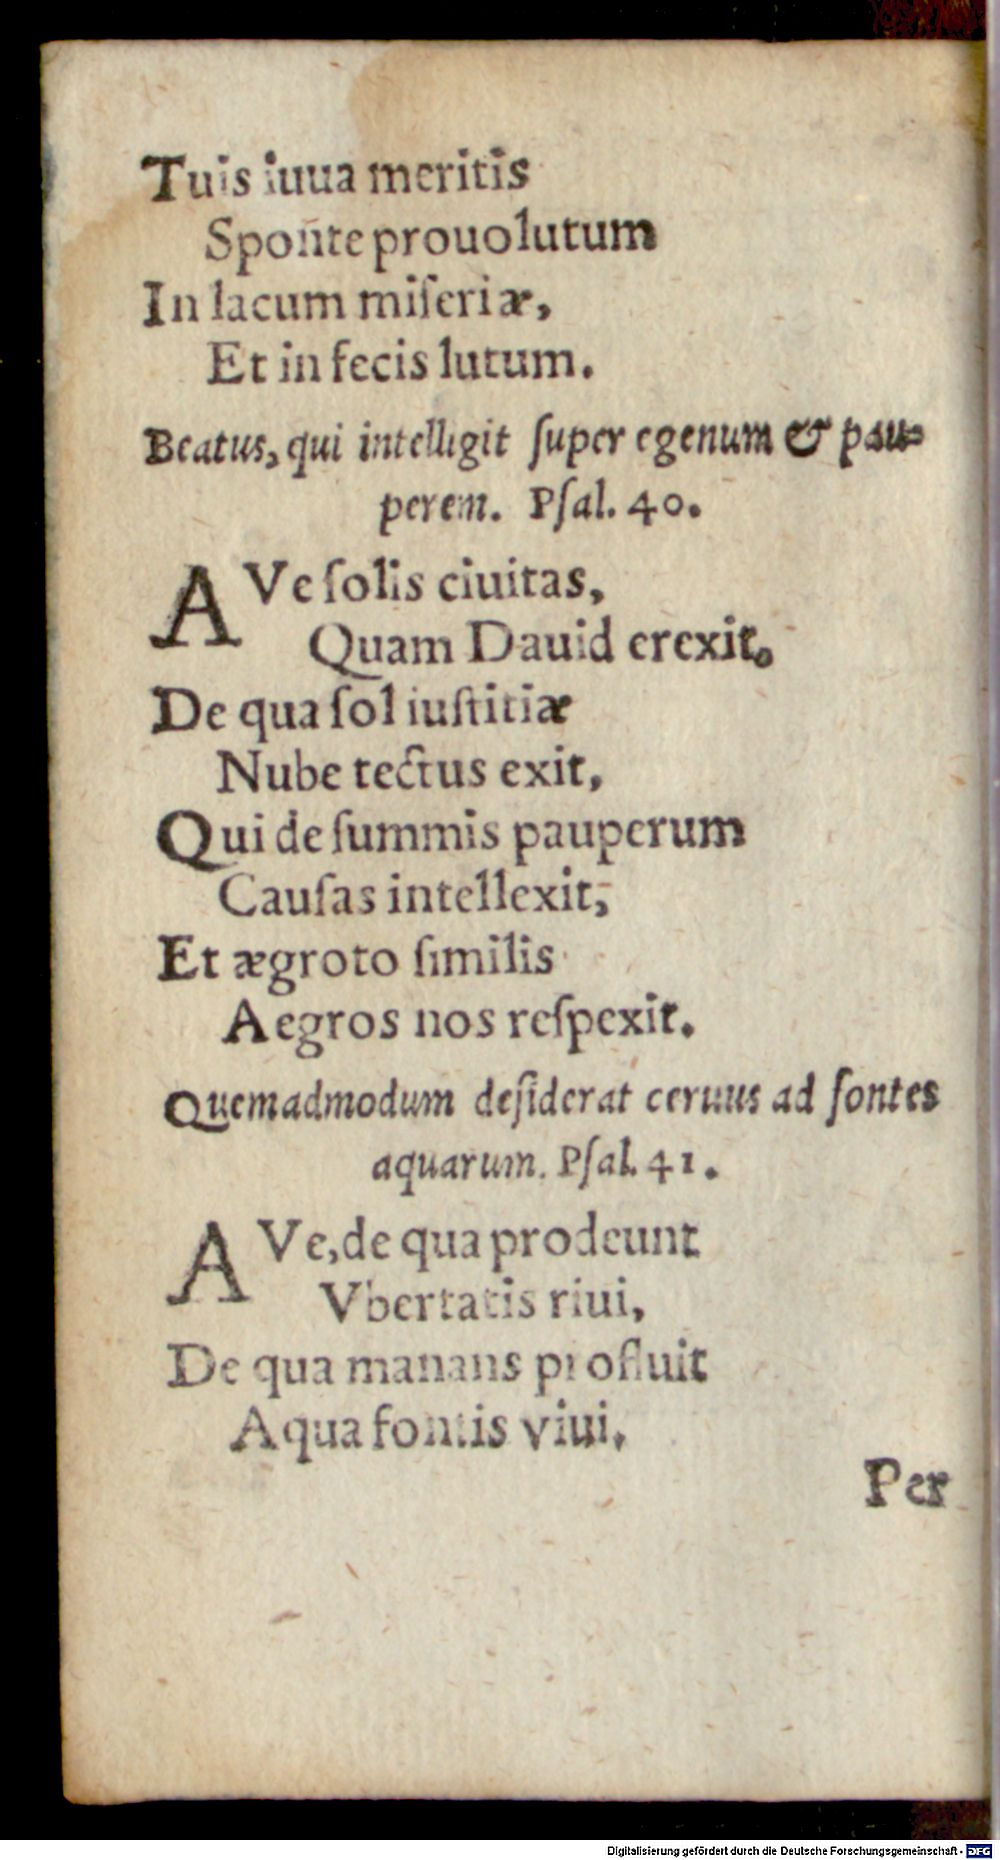 Tuis iuua meritis
Sponte prouolutum
In lacum miſeriæ,
Et in fecis lutum.
Beatus, qui intelligit ſuper egenum & pau-
perem. Pſal. 40.
AVe ſolis ciuitas,
Quam Dauid erexit.
De qua ſol iuſtitiæ
Nube tectus exit,
Qui de ſummis pauperum
Cauſas intellexit;
Et ægroto ſimilis
Aegros nos reſpexit.
Quemadmodum deſiderat ceruus ad fontes
aquarum. Pſal. 41.
AVe, de qua prodeunt
Vbertatis riui,
De qua manans profluit
Aqua fontis viui.
Per
Digitalisierung gefördert durch die Deutsche Forschungsgemeinschaft - DFG